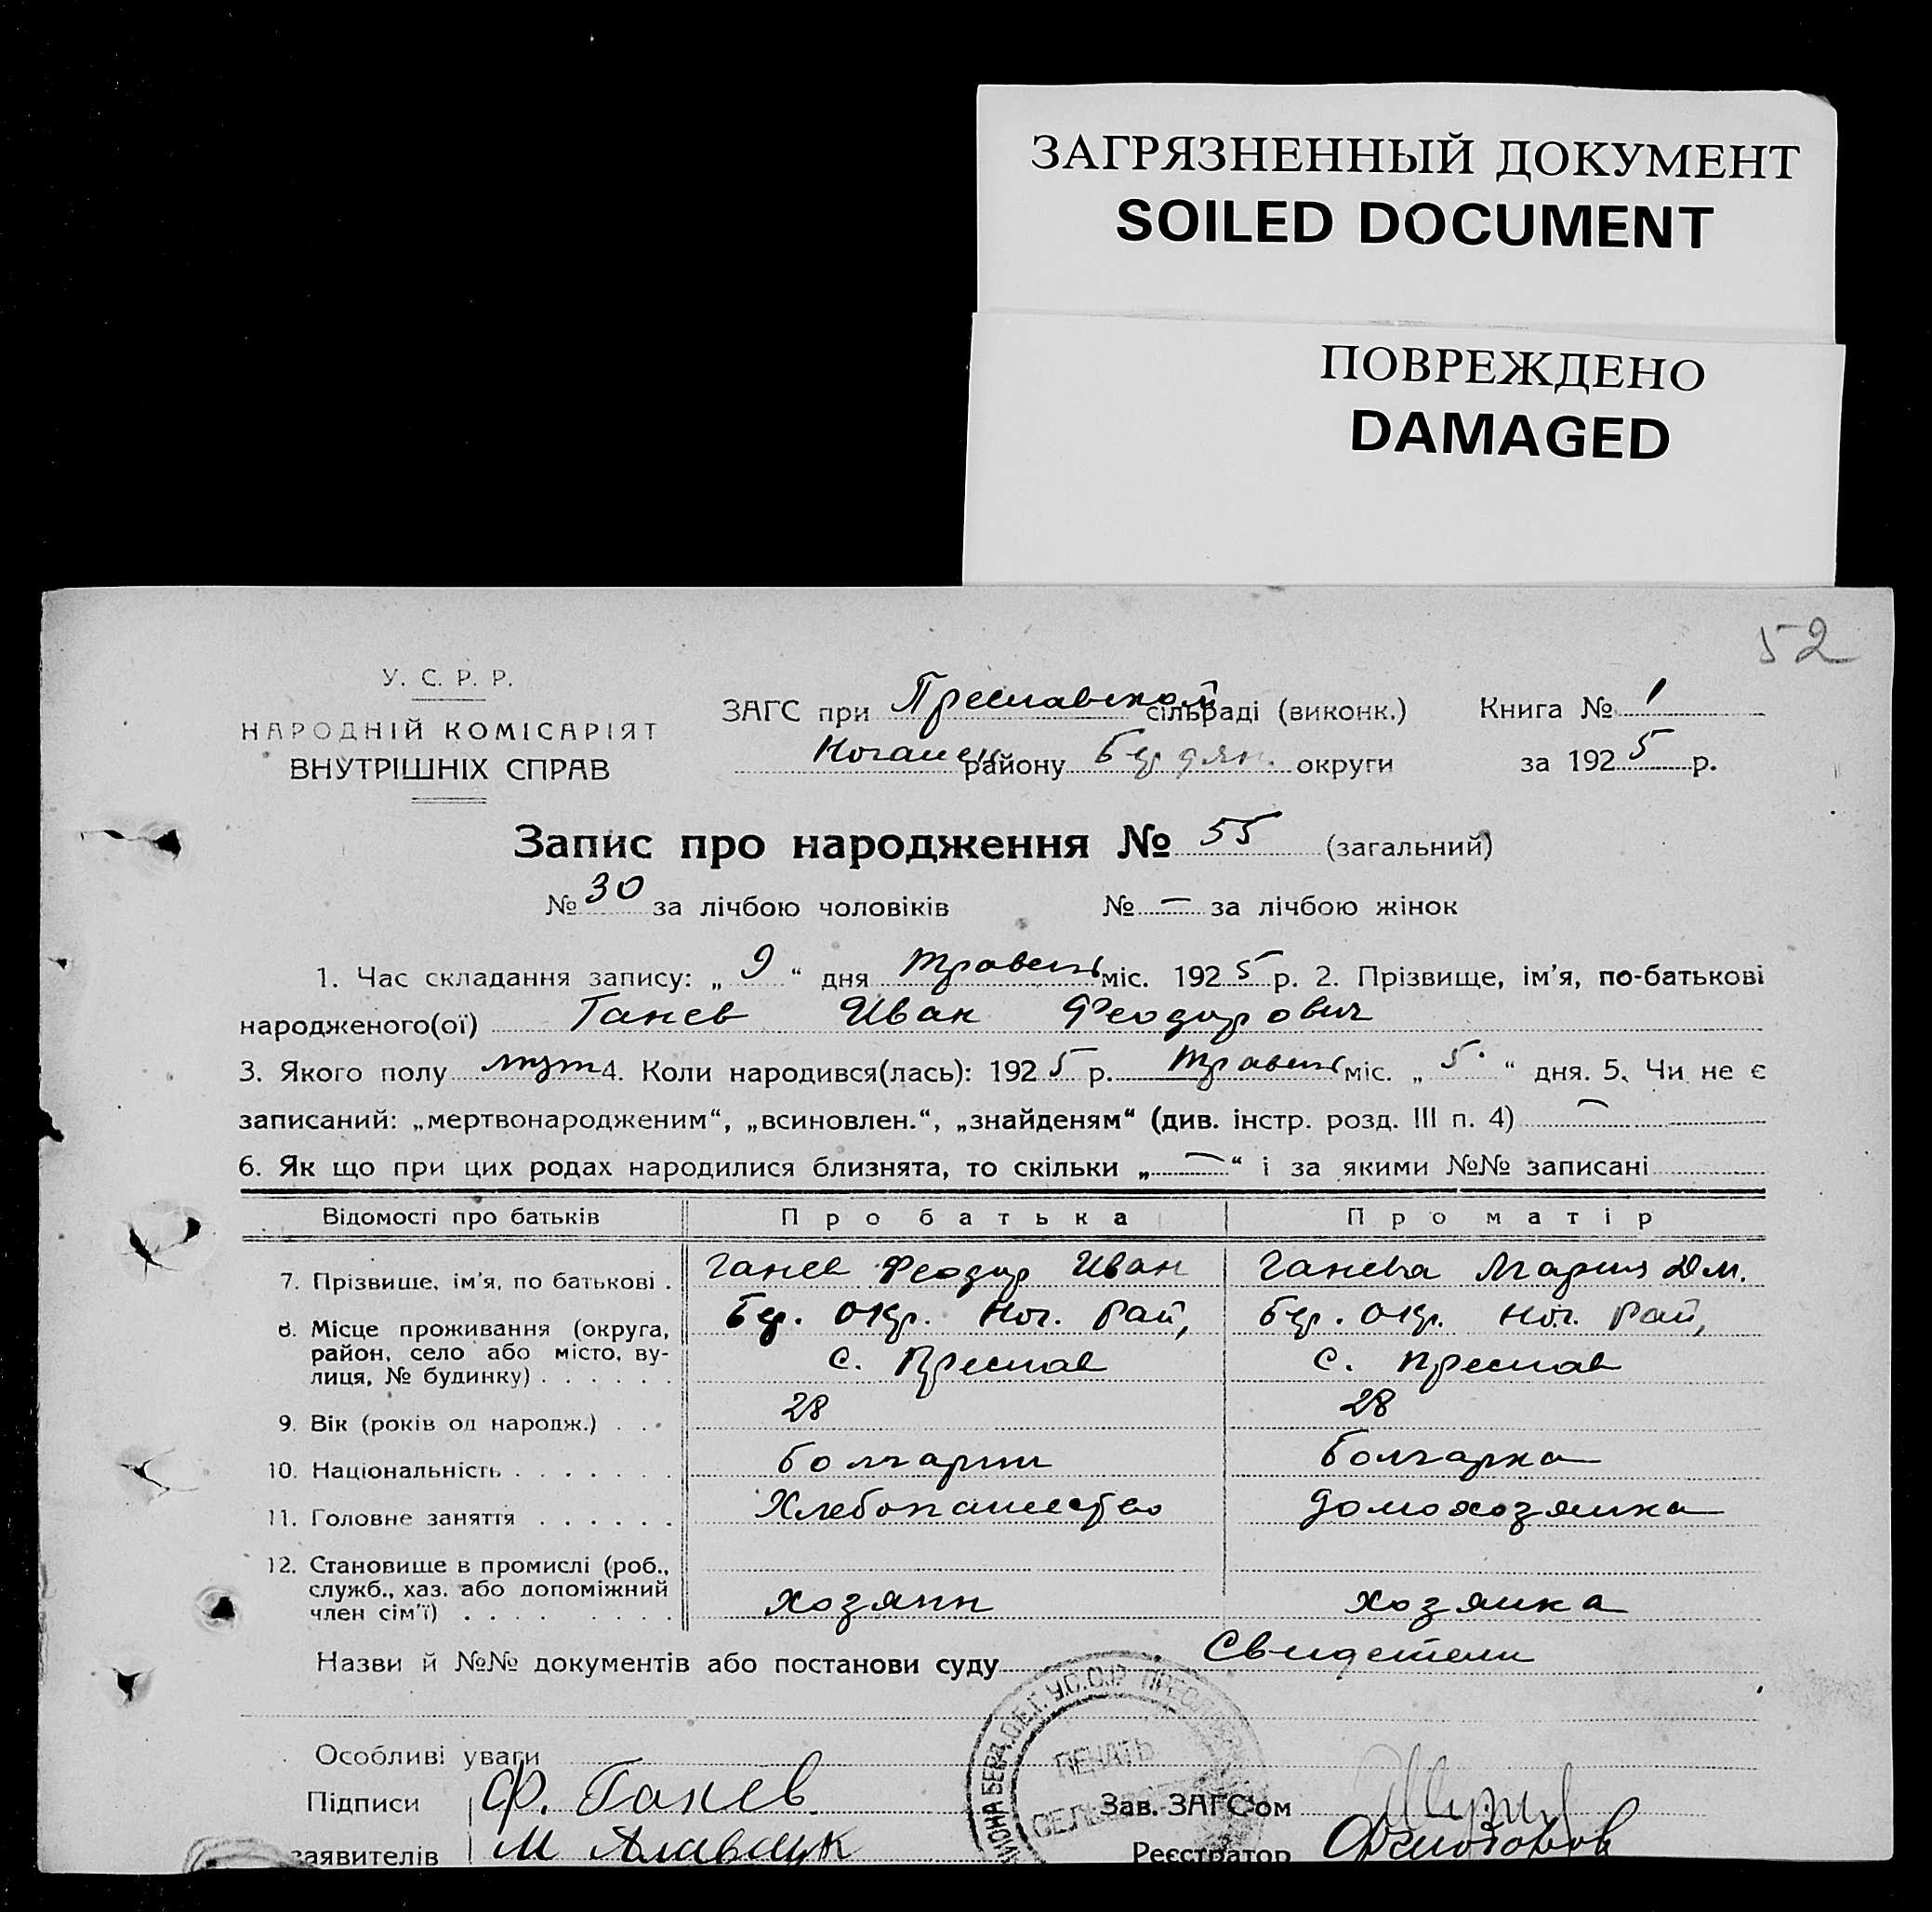 ЗАГРЯЗНЕННЫЙ ДОКУМЕНТ
SOILED DOCUMENT
ПОВРЕЖДЕНО
DAMAGED
52
У. С. Р. Р.
НАРОДНІЙ КОМІСАРІЯТ
ВНУТРІШНІХ СПРАВ
ЗАГС при Преславской сільраді (виконк.) Книга № 1
району Бердян. округи за 1925 р.
Запис про народження № 55 (загальний)
№ 30 за лічбою чоловіків № — за лічбою жінок
1. Час складання запису: „ 9 “ дня травень міс. 1925 р. 2. Прізвище, ім'я, по-батькові
народженого(ої) Ганев Иван Феодорович
3. Якого полу муж 4. Коли народився(лась): 1925 р. травень міс. „ 5 “ дня. 5. Чи не є
записаний: „мертвонародженим“, „всиновлен.“, „знайденям“ (див. інстр. розд. III п. 4) —
6. Як що при цих родах народилися близнята, то скільки „ — “ і за якими №№ записані
Відомості про батьків Про батька Про матір
7. Прізвище, ім'я, по батькові . Ганев Феодор Иван Ганева Мария Дм.
8. Місце проживання (округа, район, село або місто, ву-лиця, № будинку) . . . . . . Бер. Окр. Ног. Рай, с. Преслав Бер. Окр. Ног. Рай, с. Преслав
9. Вік (років од народж.) . . . 28 28
10. Національність . . . . . . . болгарин болгарка
11. Головне заняття . . . . . . Хлебопашество домохозяйка
12. Становище в промислі (роб., служб., хаз. або допоміжний член сім'ї) . . . . . . . . хозяин хозяйка
Назви й №№ документів або постанови суду Свидетели
Особливі уваги
Підписи Ф. Ганев Зав. ЗАГС'ом
заявителів М Реєстратор
ПЕЧАТЬ